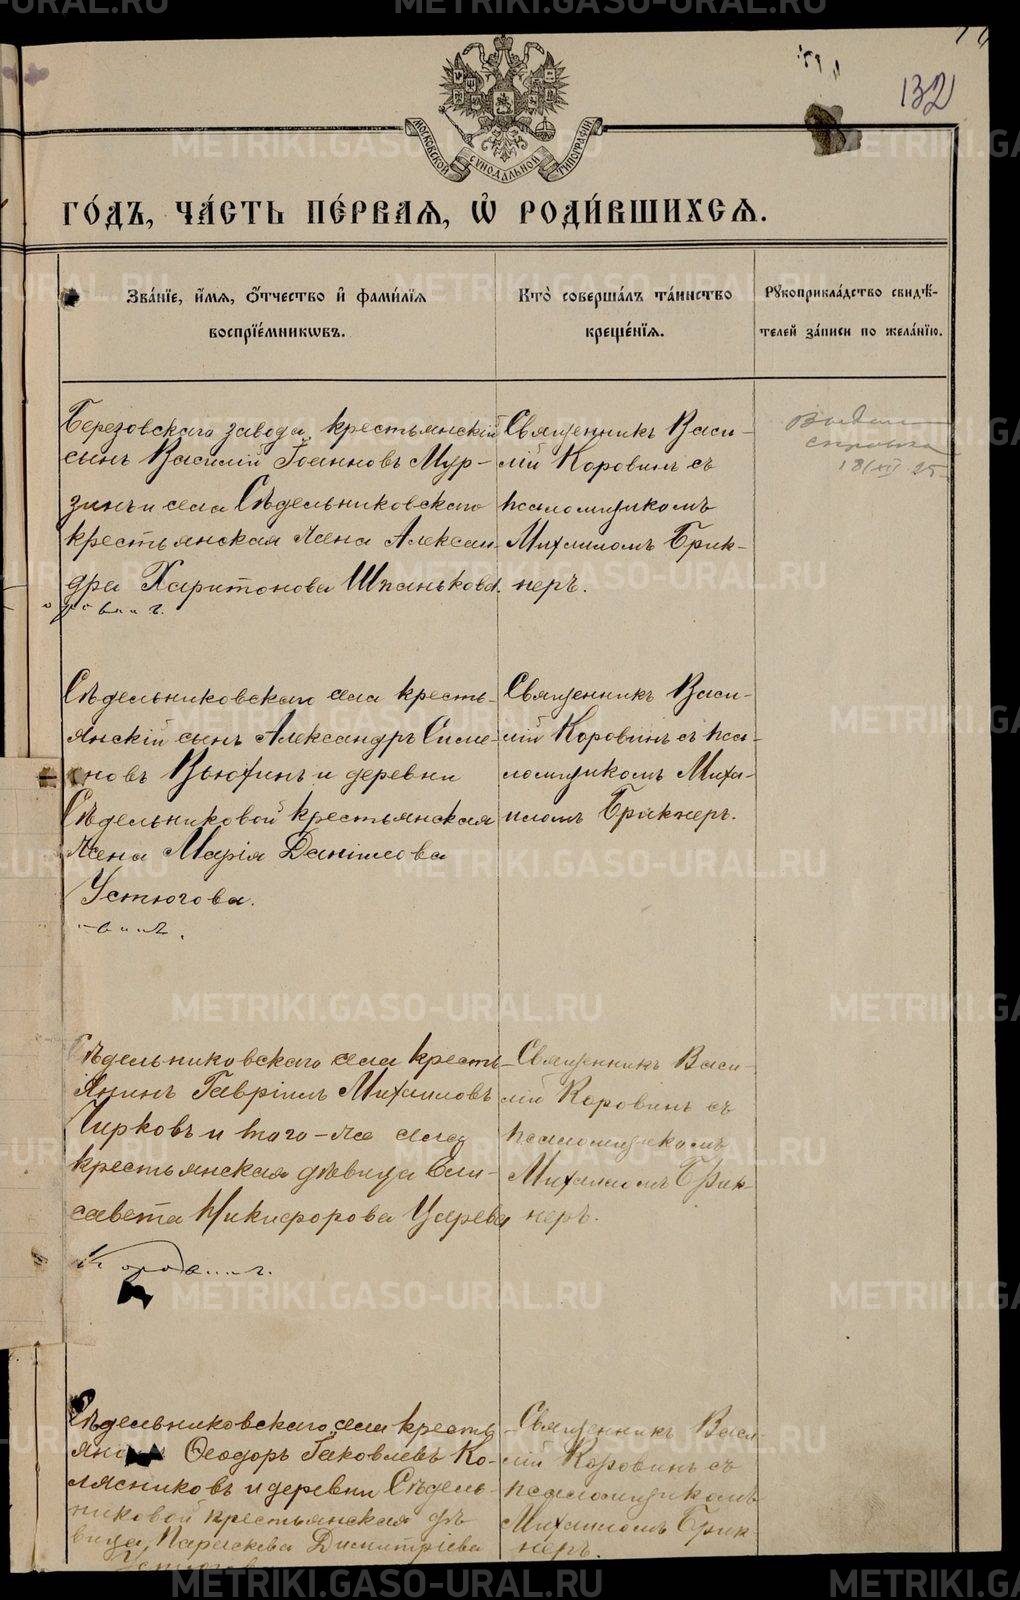 132
МОСКОВСКОЙ СѴНОДАЛЬНОЙ ТИПОГРАФІИ
ГО́ДЪ, ЧА́СТЬ ПЕ́РВАѦ, Ѡ҆ РОДИ́ВШИХСѦ.
Зва́нїе, и҆́мѧ, ѻ҆́тчество и҆ фамн́лїѧ
воспрїе́мникѡвъ.
Кто̀ соверша́лъ та́инство
креще́нїѧ.
Рꙋкоприкла́дство свидѣ́-
телей за́писи по жела́нїю.
Березовскаго завода крестьянскій
сынъ Василій Іоанновъ Мур-
зинъ и села Сѣдельниковскаго
крестьянская жена Алексан-
дра Харитонова Шпанькова.
Священникъ Васи-
лій Коровинъ съ
псаломщикомъ
Михаиломъ Брик-
неръ.
Выдана
справка
18/XII 25
Сѣдельниковскаго села кресть-
янскій сынъ Александръ Симе-
оновъ Вьюхинъ и деревни
Сѣдельниковой крестьянская
жена Марія Даніилова
Устюгова.
Священникъ Васи-
лій Коровинъ съ пса-
ломщикомъ Миха-
иломъ Брикнеръ.
Сѣдельниковскаго села кресть-
янинъ Гавріилъ Михаиловъ
Чирковъ и того-же села
крестьянская дѣвица Ели-
савета Никифорова Царева
Священникъ Васи-
лій Коровинъ съ
псаломщикомъ
Михаиломъ Брик-
неръ.
Сѣдельниковскаго села кресть
Ѳеодоръ Іаковлевъ Ко-
лясниковъ и деревни Сѣдель-
никовой крестьянская дѣ
вица Параскева Димитріева
Священникъ Васи-
лій Коровинъ съ
псаломщикомъ
Михаиломъ Брик-
неръ.
METRIKI.GASO-URAL.RU